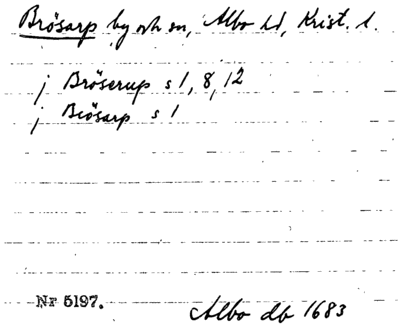 Brösarp by och sn, Albo hd, Krist. l.
j Bröserup s 1, 8, 12
j Brösarp s 1
Nr 5197.
Albo db 1683